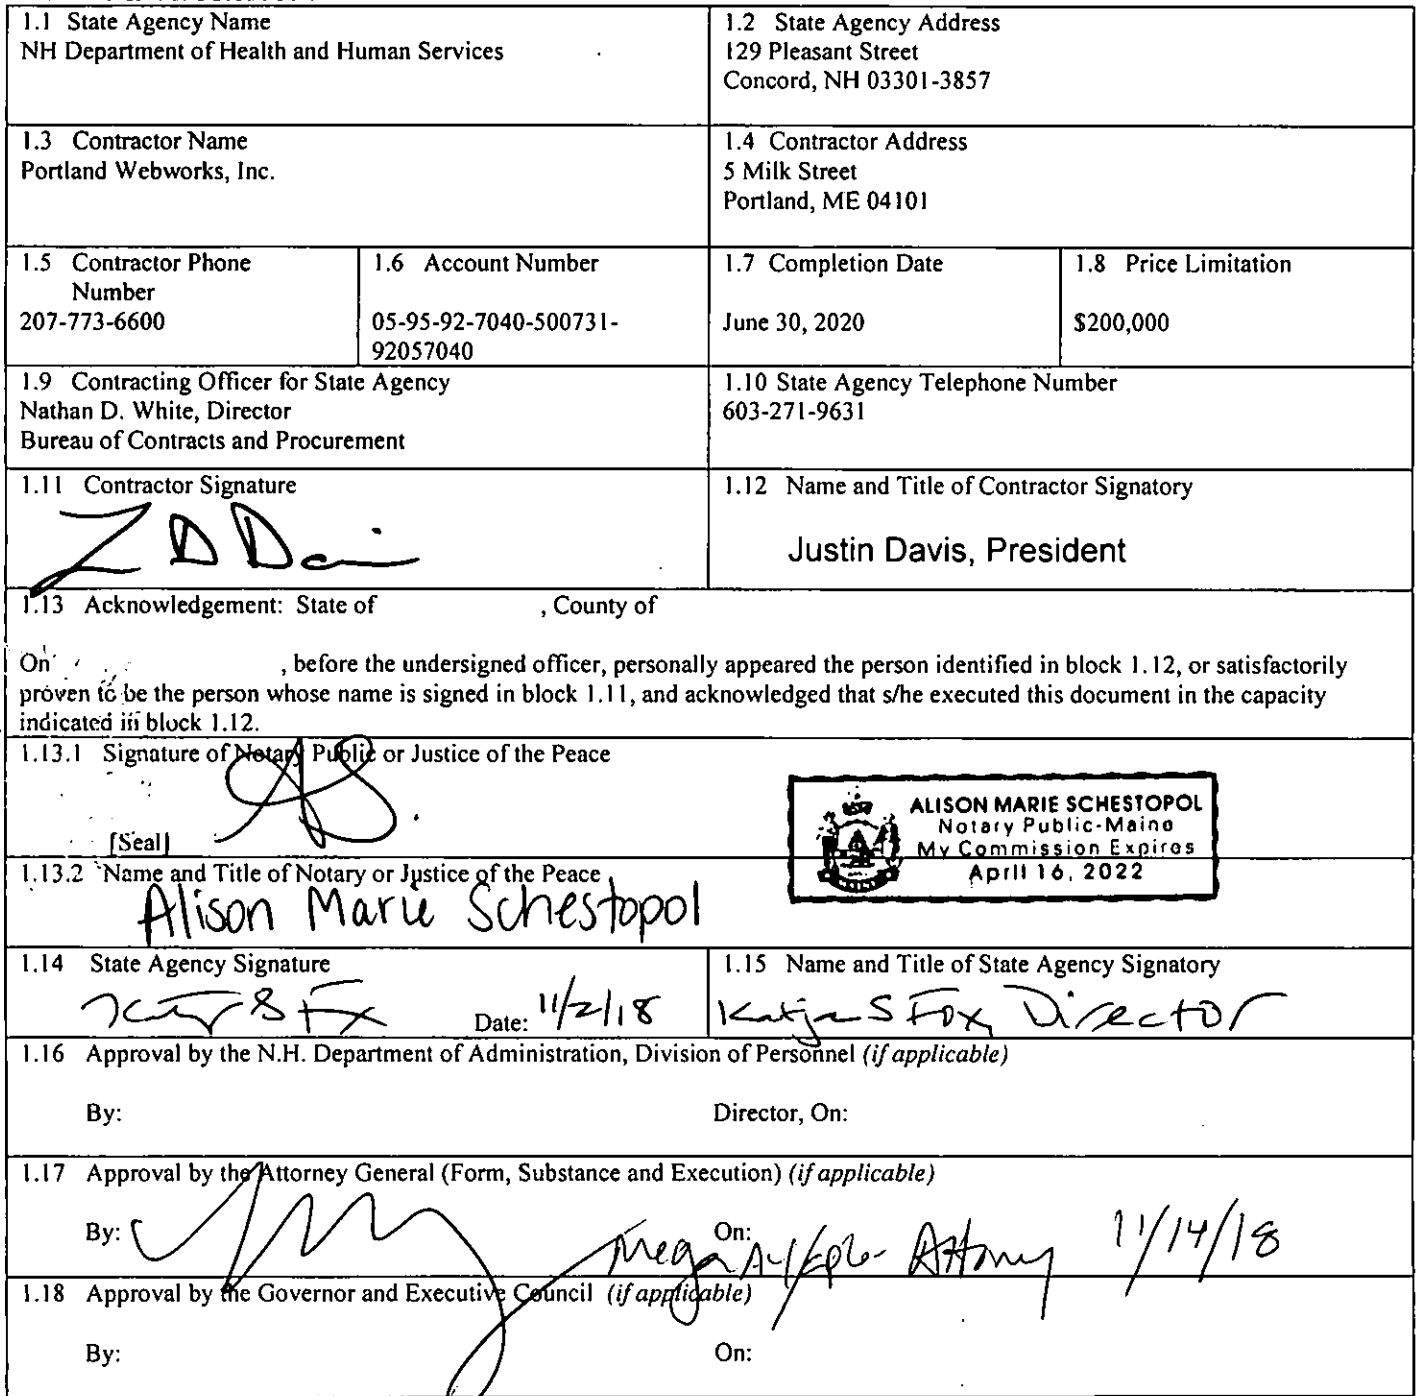 1.1 State Agency Name
NH Department of Health and Human Services
1.2 State Agency Address
129 Pleasant Street
Concord, NH 03301-3857
1.3 Contractor Name
Portland Webworks, Inc.
1.4 Contractor Address
5 Milk Street
Portland, ME 04101
1.5 Contractor Phone
Number
207-773-6600
1.6 Account Number
05-95-92-7040-500731-
92057040
1.7 Completion Date
June 30, 2020
1.8 Price Limitation
$200,000
1.9 Contracting Officer for State Agency
Nathan D. White, Director
Bureau of Contracts and Procurement
1.10 State Agency Telephone Number
603-271-9631
1.11 Contractor Signature
1.12 Name and Title of Contractor Signatory
Justin Davis, President
1.13 Acknowledgement: State of , County of
On , before the undersigned officer, personally appeared the person identified in block 1.12, or satisfactorily
proven to be the person whose name is signed in block 1.11, and acknowledged that s/he executed this document in the capacity
indicated in block 1.12.
1.13.1 Signature of Notary Public or Justice of the Peace
[Seal]
ALISON MARIE SCHESTOPOL
Notary Public-Maine
My Commission Expires
April 16, 2022
1.13.2 Name and Title of Notary or Justice of the Peace
Alison Marie Schestopol
1.14 State Agency Signature
Date: 11/2/18
1.15 Name and Title of State Agency Signatory
Katja S Fox, Director
1.16 Approval by the N.H. Department of Administration, Division of Personnel (if applicable)
By:
Director, On:
1.17 Approval by the Attorney General (Form, Substance and Execution) (if applicable)
By:
On:
Attorney 11/14/18
1.18 Approval by the Governor and Executive Council (if applicable)
By:
On: